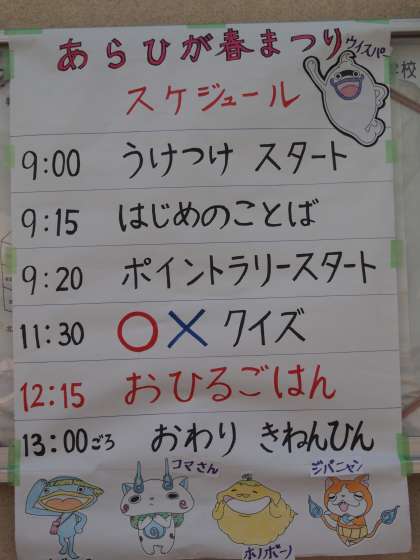 あらひが春まつり
ウィスパー
校
スケジュール
9:00 うけつけ スタート
9:15 はじめのことば
9:20 ポイントラリースタート
11:30 ○×クイズ
12:15 おひるごはん
13:00ごろ おわり きねんひん
コマさん
ジバニャン
ホノボーノ